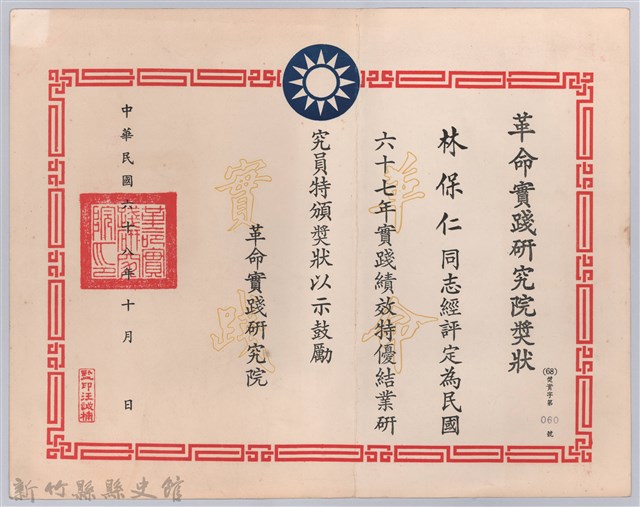 革命實踐研究院獎狀
(68)獎實字第 060 號
林保仁同志經評定為民國
六十七年實踐績效特優結業研
究員特頒獎狀以示鼓勵
革命實踐研究院
中華民國六十八年十月 日
革命
實踐
新竹縣縣史館